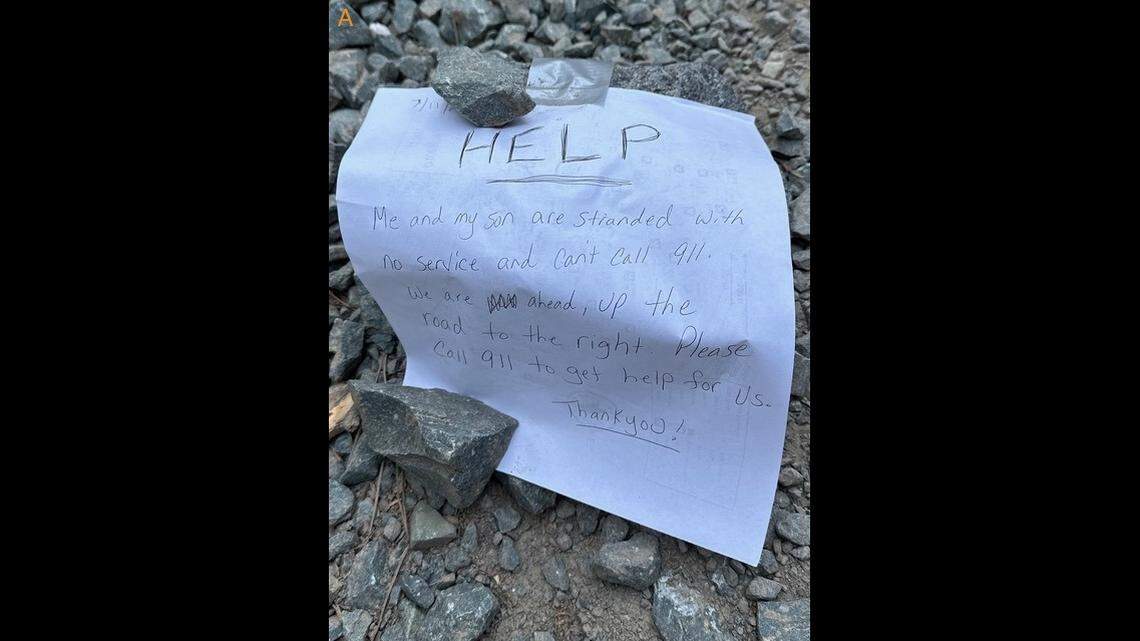 A
HELP
Me and my son are stranded with
no service and can't call 911.
We are ahead, up the
road to the right. Please
Call 911 to get help for us.
Thankyou!